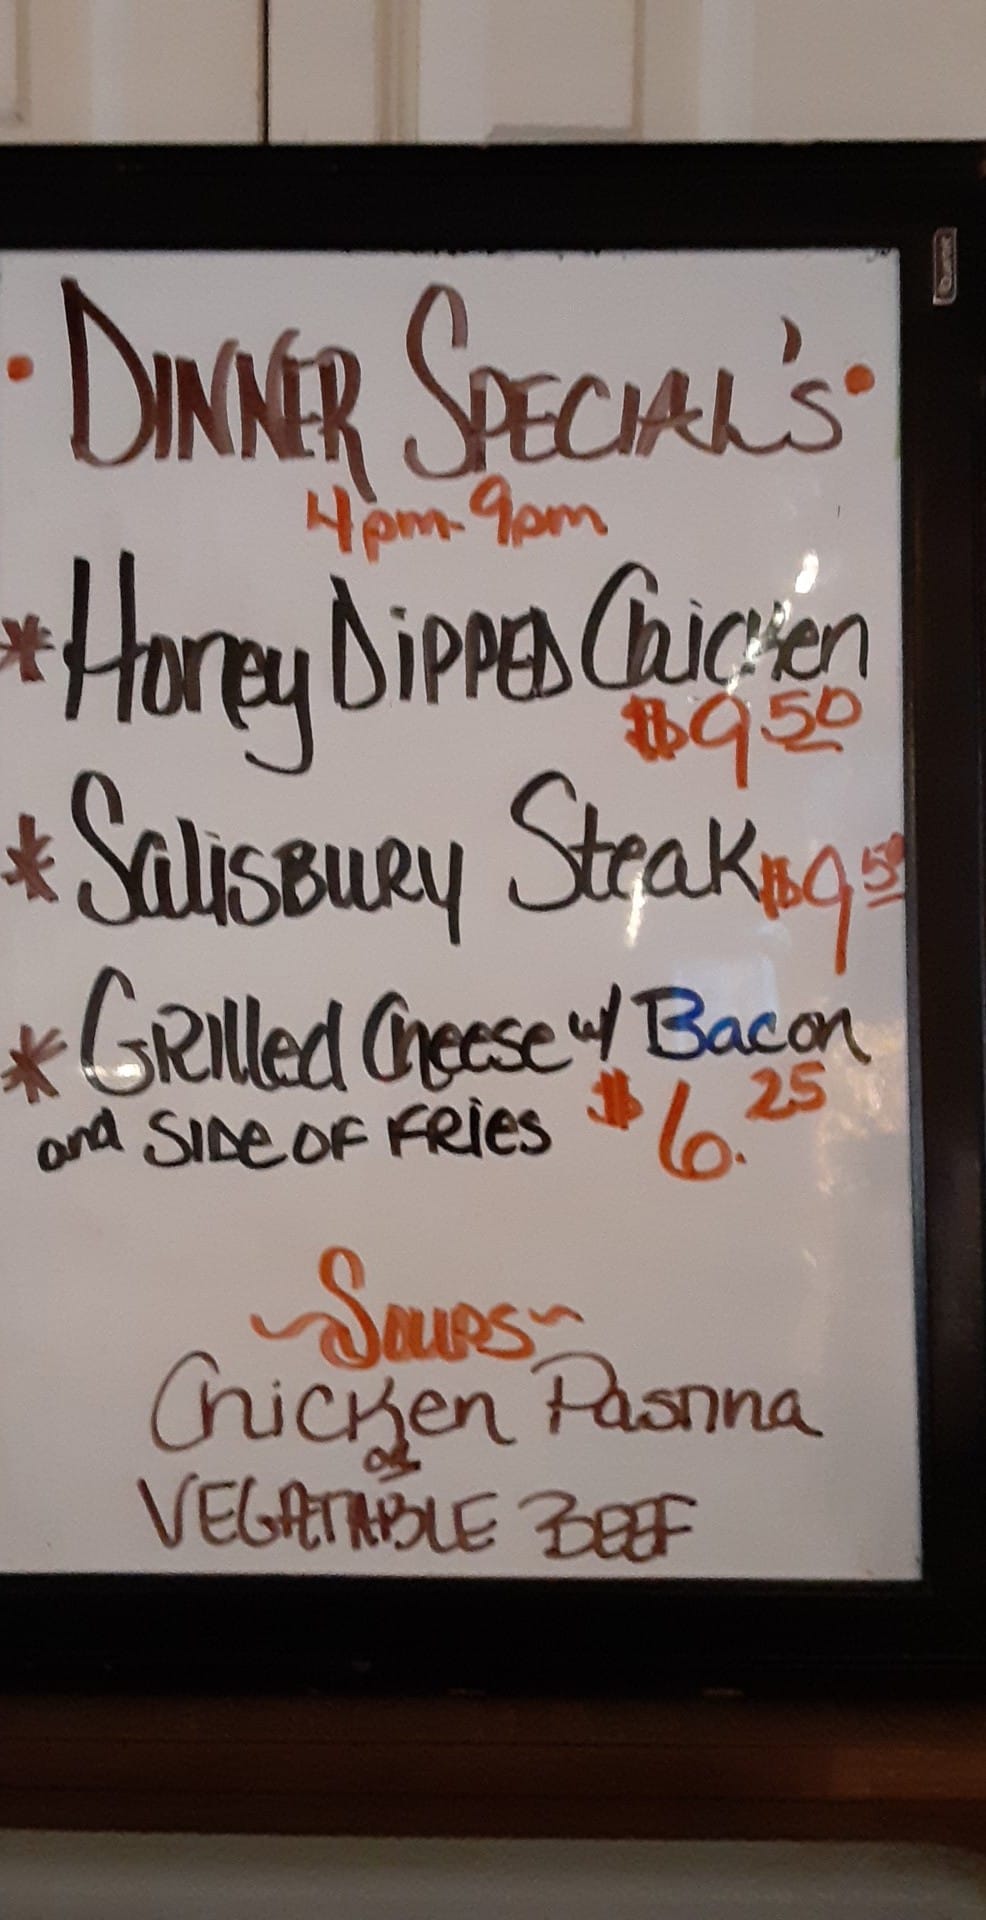 • DINNER SPECIAL'S •
4pm-9pm
* Honey DiPPED Chicken
$9 50
* SaliSBURY Steak $9 50
* GRilled Cheese w/ Bacon
and SIDe OF FRies $6.25
~Soups~
Chicken Pastina
or
VEGATABLE BEEF
Quartet